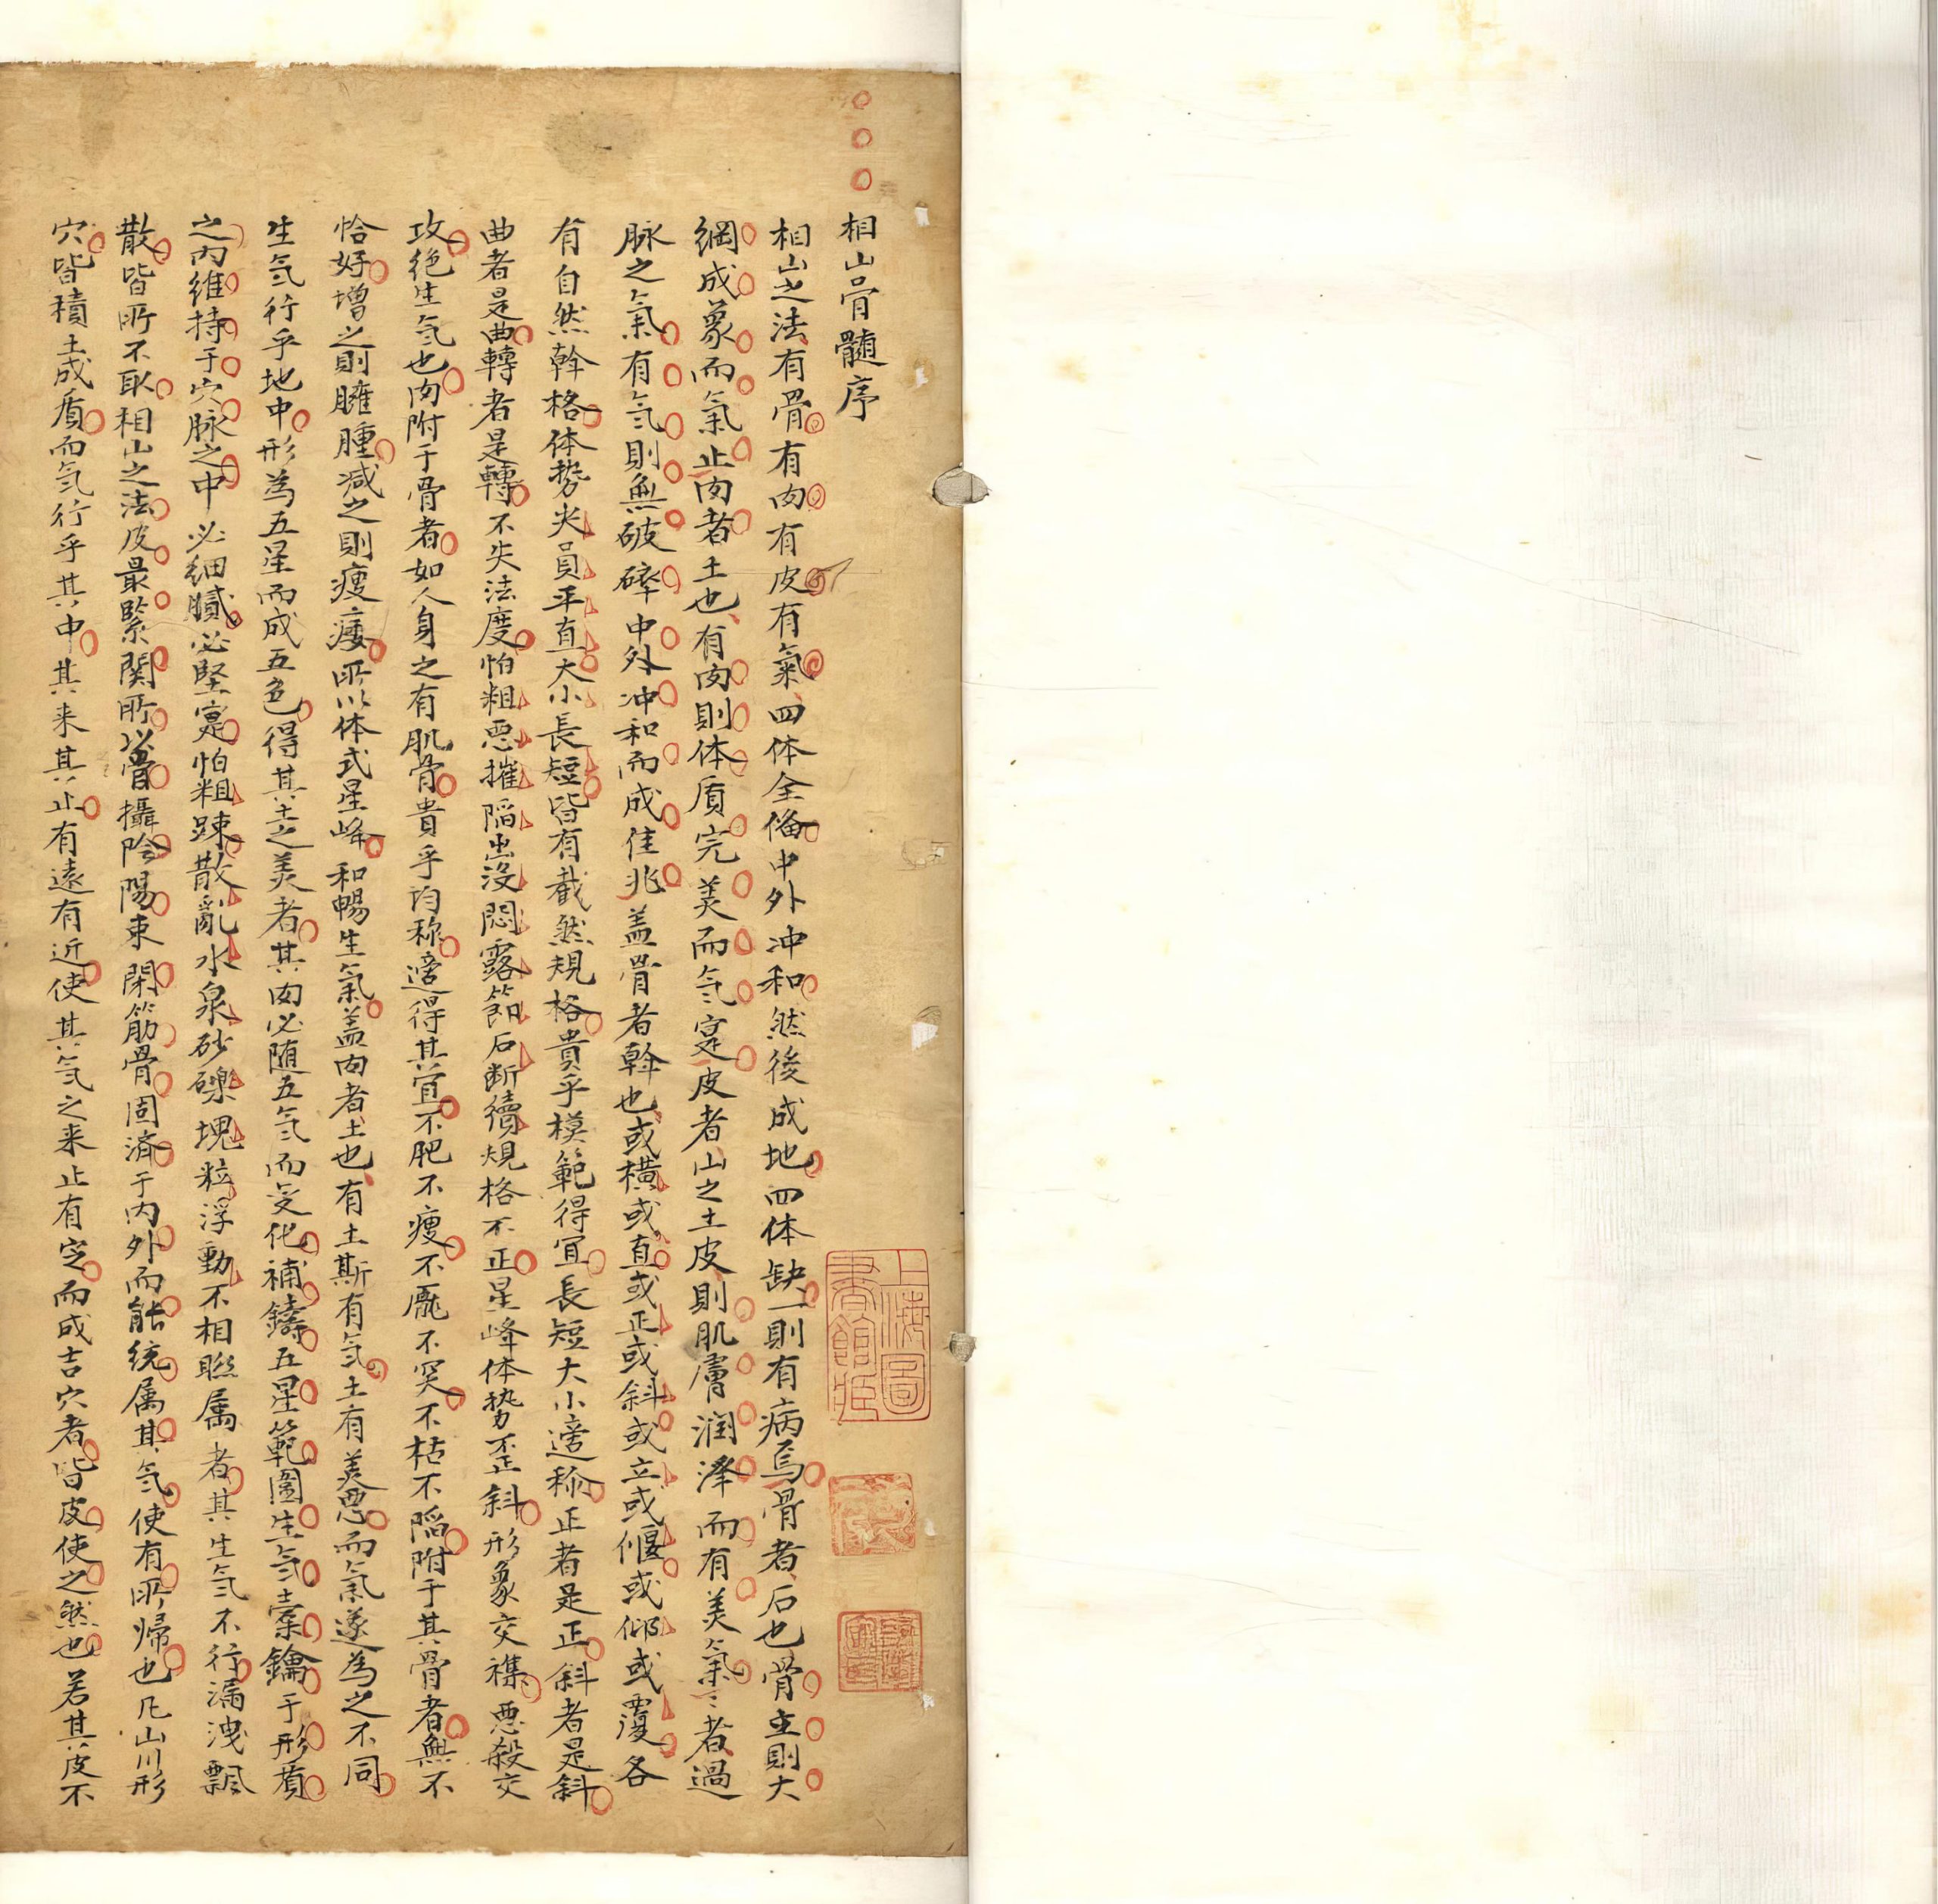 相山骨髓序
相山之法有骨有肉有皮有氣四体全俻中外冲和然後成地四体缺一則有病焉骨者石也骨立則大
綱成象而氣止肉者土也有肉則体质完美而气寔皮者山之土皮則肌膚润泽而有美氣〻者過
脉之氣有气則無破碎中外冲和而成佳兆盖骨者幹也或横或直或正或斜或立或偃或仰或覆各
有自然幹格体势尖員平直大小長短皆有截然規格貴乎模範得宜長短大小適称正者是正斜者是斜
曲者是曲轉者是轉不失法度怕粗恶摧陷出没悶露節石断續規格不正星峰体势歪斜形象交襍恶殺交
攻绝生气也肉附于骨者如人身之有肌骨貴乎均称適得其宜不肥不瘦不厖不突不枯不陷附于其骨者無不
恰好增之則臃腫减之則瘦瘘所以体式星峰和暢生氣盖肉者土也有土斯有气土有美恶而氣遂為之不同
生气行乎地中形為五星而成五色得其土之美者其肉必随五气而变化補鑄五星範圍生气橐鑰于形質
之内維持于穴脉之中必細膩必堅寔怕粗疎散亂水泉砂礫塊粒浮動不相聮属者其生气不行漏洩飄
散皆所不取相山之法皮最緊関所以管攝阴陽束閑筋骨固济于内外而能统属其气使有所歸也凡山川形
穴皆積土成质而气行乎其中其来其止有遠有近使其气之来止有定而成吉穴者皆皮使之然也若其皮不
上海圖
書館藏